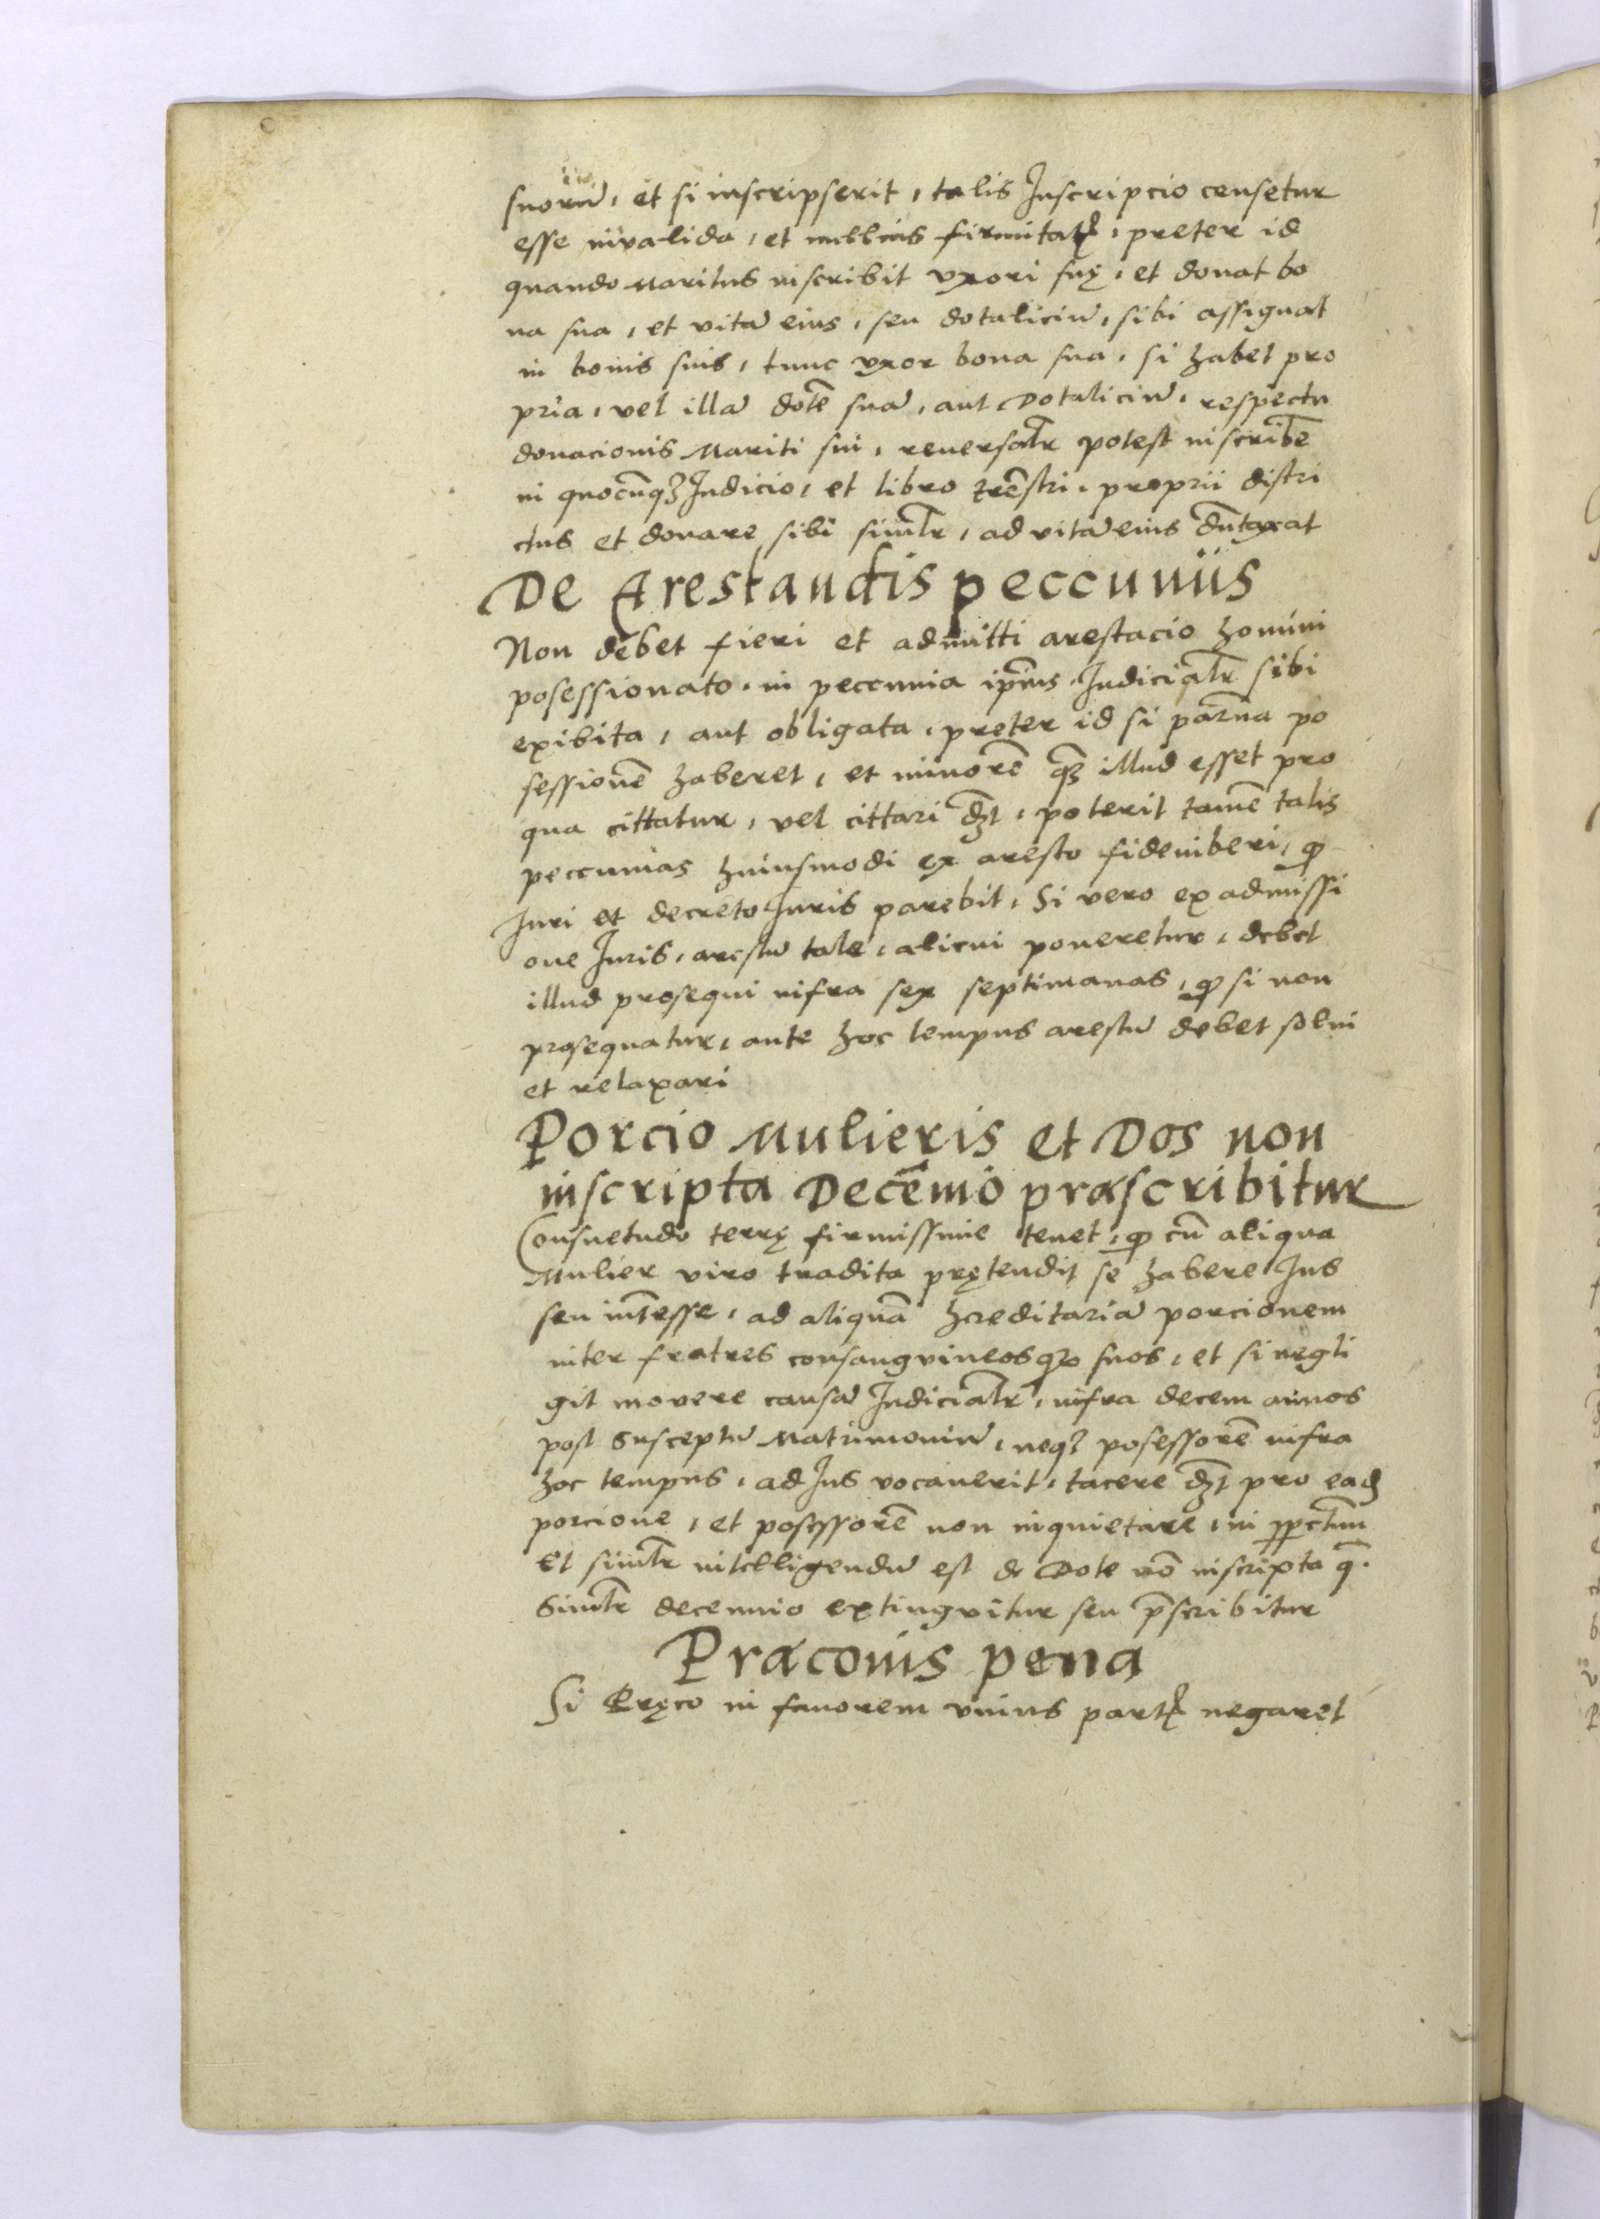 suorū, et si inscripserit, talis Inscripcio censetur
esse invalida, et nullius firmitatꝭ, preter id
quando Maritus inscribit vxori suę, et donat bo
na sua, et vitā eius, seu dotaliciū, sibi assignat
in bonis suis, tunc vxor bona sua, si habet pro
pria, vel illā dotē suā, aut Dotaliciū, respectu
donacionis Mariti sui, reuersalr̄ potest inscribē
in quocūqꝫ Iudicio, et libro trēstri, proprii distri
ctus et donare sibi similr̄, ad vitā eius dūtaxat
De Arestandis peccuniis
Non debet fieri et admitti arestacio homini
posessionato, in peccunia ip̄ius, Iudicialr̄ sibi
exibita, aut obligata, preter id si paruā po
sessionē haberet, et minorē qꝫ̄ illud esset pro
qua cittatur, vel cittari dꝫt, poterit tamē talis
peccunias huiusmodi ex aresto fideiuberi, ꝙ
Iuri et decreto Iuris parebit, Si vero ex admissi
one Iuris, arestū tale, alicui poneretur, debet
illud prosequi infra sex septimanas, ꝙ si non
prosequatur, ante hoc tempus arestū debet solui
et relaxari
Porcio Mulieris et Dos non
inscripta Decēnio præscribitur
Consuetudo terrę firmissime tenet, ꝙ cū aliqua
Mulier viro tradita prętendit se habere Ius
seu intēesse, ad aliquā hereditariā porcionem
inter fratres consangvineosqꝫ suos, et si negli
git movere causā Iudicialr̄, infra decem annos
post susceptū Matrimoniū, neqꝫ posessorē infra
hoc tempus, ad Ius vocauerit, tacere dꝫt pro eadꝫ
porcione, et posessorē non inquietare, in ꝑpetuum
Et similr̄ intelligendū est de Dote nō inscripta q̄.
Similr̄ decennio extingvitur seu p̄scribitur
Præconis pena
Si Pręco in fauorem vnius partꝭ negaret